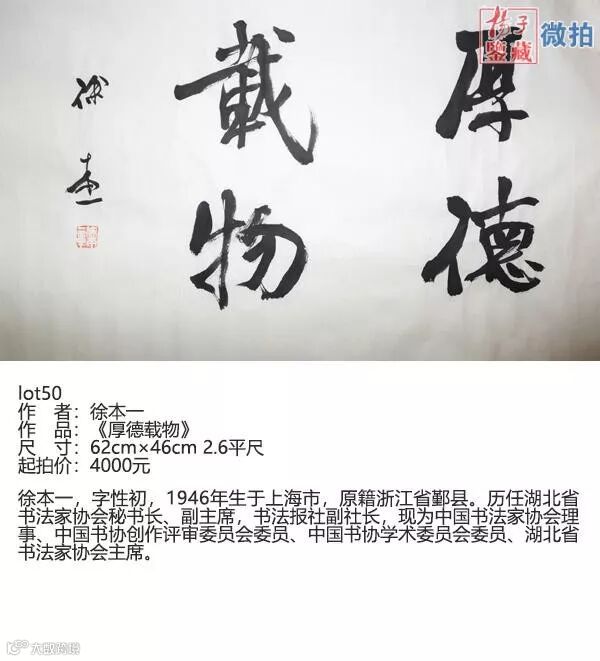 扬子
鉴藏
微拍
厚德
載物
徐本一
lot50
作 者：徐本一
作 品：《厚德载物》
尺 寸：62cm×46cm 2.6平尺
起拍价：4000元
徐本一，字性初，1946年生于上海市，原籍浙江省鄞县。历任湖北省
书法家协会秘书长、副主席，书法报社副社长，现为中国书法家协会理
事、中国书协创作评审委员会委员、中国书协学术委员会委员、湖北省
书法家协会主席。
大数跨境